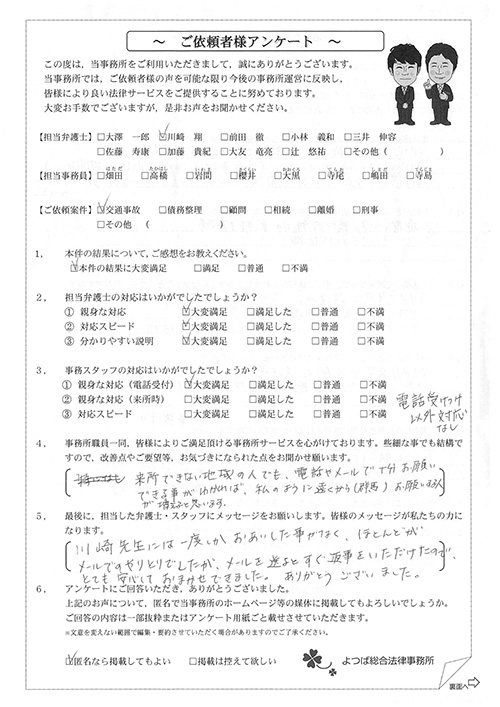 ～ ご依頼者様アンケート ～
この度は，当事務所をご利用いただきまして，誠にありがとうございます。
当事務所では，ご依頼者様の声を可能な限り今後の事務所運営に反映し，
皆様により良い法律サービスをご提供することに努めております。
大変お手数でございますが，是非お声をお聞かせください。
【担当弁護士】□大澤 一郎 ☑川﨑 翔 □前田 徹 □小林 義和 □三井 伸容
□佐藤 寿康 □加藤 貴紀 □大友 竜亮 □辻 悠祐 □その他（ ）
【担当事務員】□畑田 □高橋 □岩間 □櫻井 □大黒 □寺尾 □嶋田 □寺島
【ご依頼案件】☑交通事故 □債務整理 □顧問 □相続 □離婚 □刑事
□その他（ ）
1． 本件の結果について，ご感想をお教えください。
☑本件の結果に大変満足 □満足 □普通 □不満
2． 担当弁護士の対応はいかがでしたでしょうか？
① 親身な対応 ☑大変満足 □満足した □普通 □不満
② 対応スピード ☑大変満足 □満足した □普通 □不満
③ 分かりやすい説明 ☑大変満足 □満足した □普通 □不満
3． 事務スタッフの対応はいかがでしたでしょうか？
① 親身な対応（電話受付） ☑大変満足 □満足した □普通 □不満
② 親身な対応（来所時） □大変満足 □満足した □普通 □不満
③ 対応スピード □大変満足 □満足した □普通 □不満
電話受けつけ
以外対応
なし
4． 事務所職員一同，皆様によりご満足頂ける事務所サービスを心がけております。些細な事でも結構で
すので，改善点やご要望等，お気づきになられた点をお聞かせ願います。
来所できない地域の人でも、電話やメールで十分お願い
できる事がわかれば、私のように遠くから(群馬)お願いする人
が増えると思います。
5． 最後に，担当した弁護士・スタッフにメッセージをお願いします。皆様のメッセージが私たちの力に
なります。
川﨑先生には一度しかおあいした事がなく、ほとんどが
メールでのやりとりでしたが、メールを送るとすぐ返事をいただけたので、
とても安心しておまかせできました。ありがとうございました。
6． アンケートにご回答いただき，ありがとうございました。
上記のお声について，匿名で当事務所のホームページ等の媒体に掲載してもよろしいでしょうか。
ご回答の内容は一部抜粋またはアンケート用紙ごと掲載させていただきます。
※文意を変えない範囲で編集・要約させていただく場合がありますのでご了承ください。
☑匿名なら掲載してもよい □掲載は控えて欲しい
よつば総合法律事務所
裏面へ